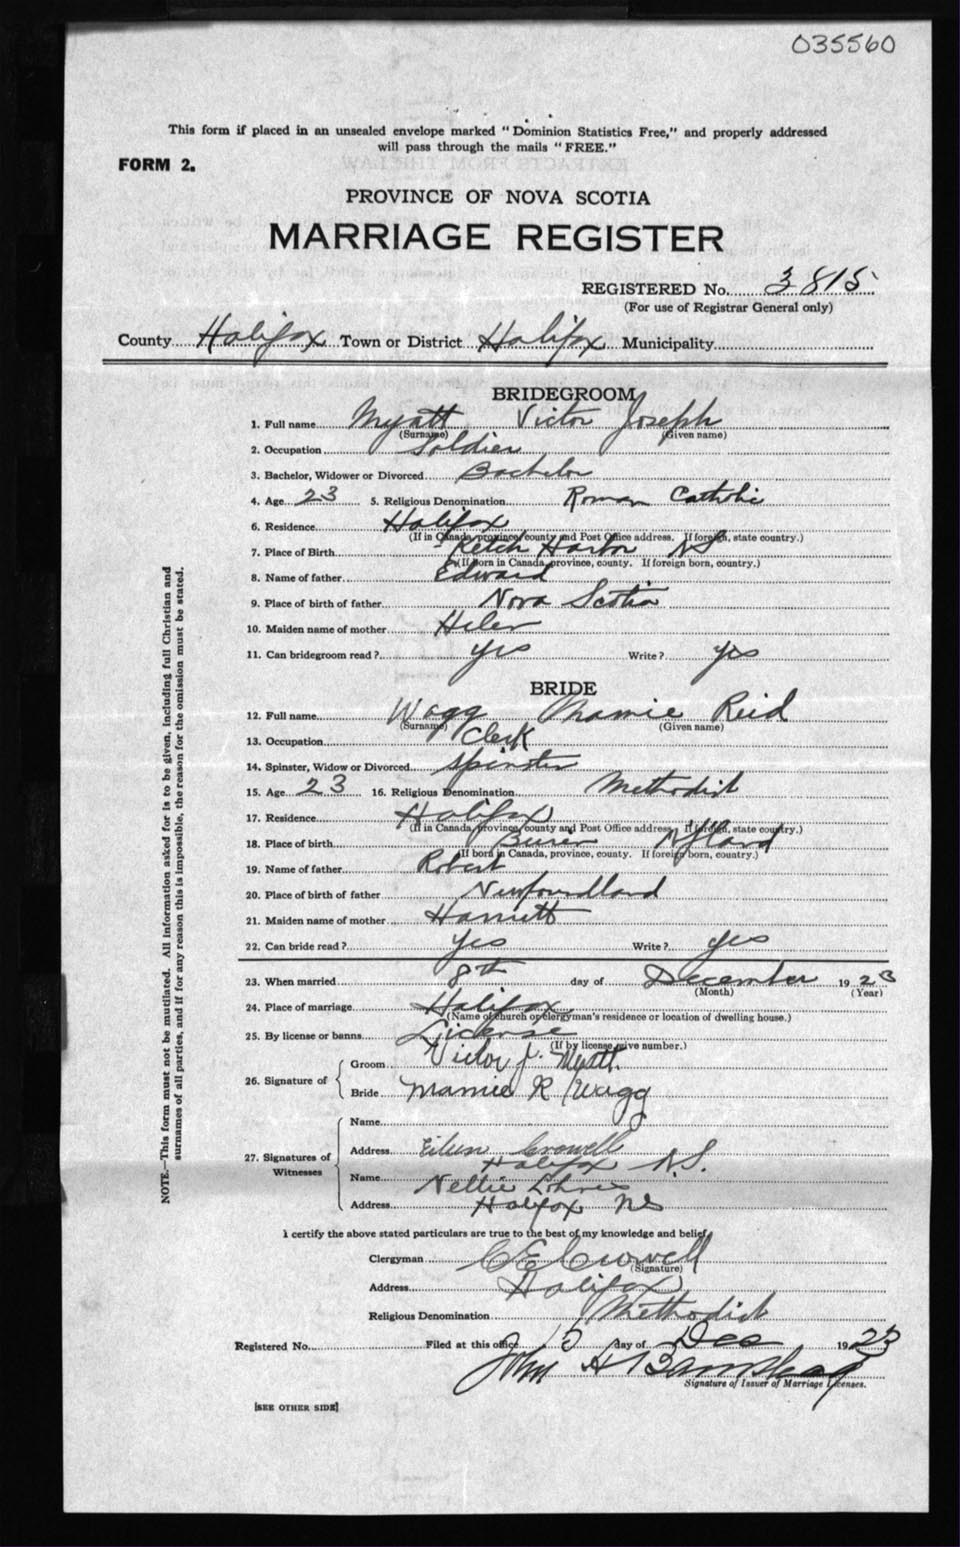 035560
This form if placed in an unsealed envelope marked "Dominion Statistics Free," and properly addressed
will pass through the mails "FREE."
FORM 2.
PROVINCE OF NOVA SCOTIA
MARRIAGE REGISTER
REGISTERED No. 3815
(For use of Registrar General only)
County Halifax Town or District Halifax Municipality
BRIDEGROOM
1. Full name Myatt Victor Joseph
(Surname) (Given name)
2. Occupation Soldier
3. Bachelor, Widower or Divorced Bachelor
4. Age 23 5. Religious Denomination Roman Catholic
6. Residence Halifax
(If in Canada, province, county and Post Office address. If foreign, state country.)
7. Place of Birth Ketch Harbor NS
(If Born in Canada, province, county. If foreign born, country.)
8. Name of father Edward
9. Place of birth of father Nova Scotia
10. Maiden name of mother Helen
11. Can bridegroom read? yes Write? yes
BRIDE
12. Full name Wagg Mamie Reid
(Surname) (Given name)
13. Occupation Clerk
14. Spinster, Widow or Divorced Spinster
15. Age 23 16. Religious Denomination Methodist
17. Residence Halifax
(If in Canada, province, county and Post Office address. If foreign, state country.)
18. Place of birth Burin Nfland
(If born in Canada, province, county. If foreign born, country.)
19. Name of father Robert
20. Place of birth of father Newfoundland
21. Maiden name of mother Harriett
22. Can bride read? Yes Write? yes
23. When married 8th day of December 1923
(Month) (Year)
24. Place of marriage Halifax
(Name of church or clergyman's residence or location of dwelling house.)
25. By license or banns License
(If by license, give number.)
26. Signature of Groom Victor J. Myatt.
Bride Mamie R Wagg
27. Signatures of Witnesses
Name
Address Eileen Crowell
Halifax N.S.
Name Nellie
Address Halifax NS
I certify the above stated particulars are true to the best of my knowledge and belief,
Clergyman C E Crowell
(Signature)
Address Halifax
Religious Denomination Methodist
Registered No. Filed at this office day of Dec 1923
John H Barnstead
Signature of Issuer of Marriage Licenses.
[SEE OTHER SIDE]
NOTE.—This form must not be mutilated. All information asked for is to be given, including full Christian and
surnames of all parties, and if for any reason this is impossible, the reason for the omission must be stated.